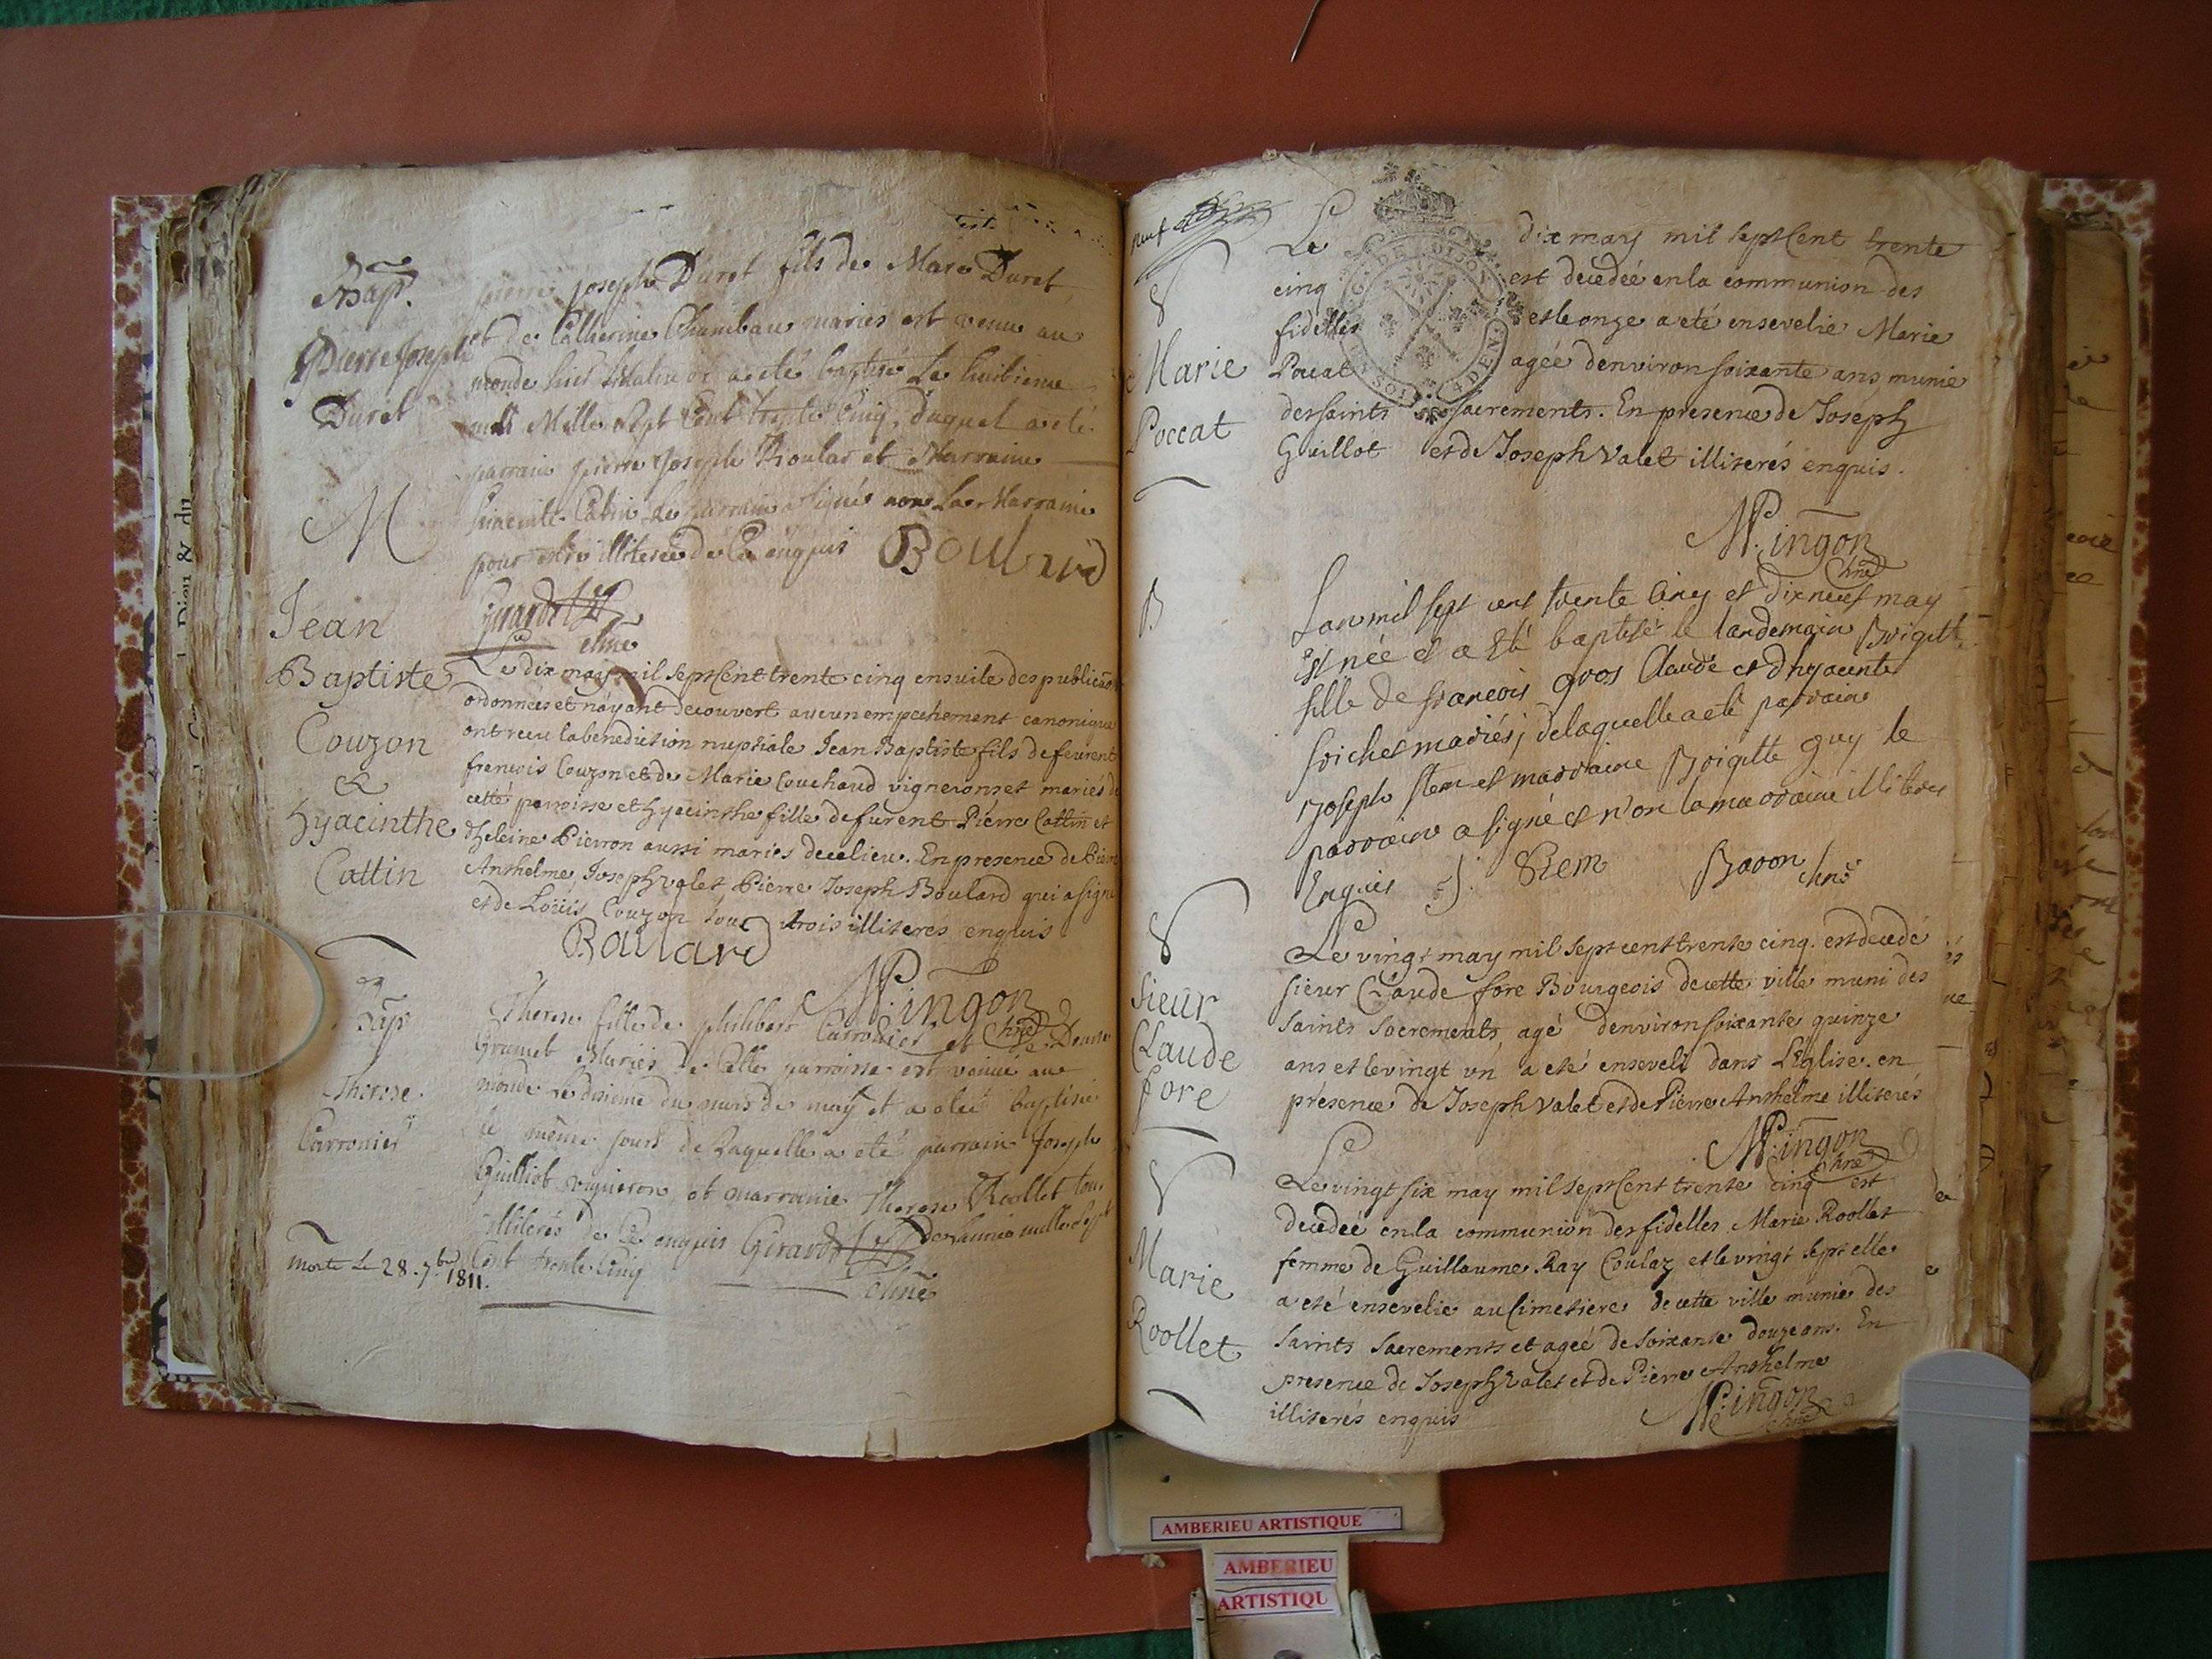 Bap.
Pierre Joseph
Duret
pierre joseph Duret fils de Marc Duret
et de Catherine Chambau mariés est venu au
monde hier a été baptisé Le huitieme
Mille Sept Cent trente Cinq, duquel a eté
parrain pierre joseph Boular et Marraine
Cattin Le parrain a signé non La Marraine
pour etre illiterée de Ce enquis Boulard
Girard
chne
M
Jean
Baptiste
Couzon
&
hyacinthe
Cattin
Le dix may mil sept Cent trente cinq ensuite des publica͠
ordonnées et n'ayant decouvert aucun empechement canonique
ont receu la benediction nuptiale Jean Baptiste fils de feurent
francois Couzon et de Marie Couchaud vignerons et mariés de
cette parroisse et hyacinthe fille de furent Pierre Cattin et
heleine Pierron aussi mariés de ce lieu. En presence de Pierre
Anthelme, Joseph valet Pierre Joseph Boulard qui a signé
et de Loüis Couzon tous trois illiterés enquis
Boulard
N. Pingon
chne
Bap
Therese
Carronier
Therese fille de philibert Carronier et de
Gramet Mariés de Cette parroisse est venuë au
monde le dixieme du mois de may et a eteé baptisée
le même jours de Laquelle a eté parrain Joseph
Guilliot vigneron et marraine Therese Roollet tous
illiterés de Ce enquis Girard de L'année mille Sept
Cent trente Cinq chne
morte Le 28. 7bre 1811.
neuf
Marie
Poccat
Le dix may mil sept Cent trente
cinq est decedée en la communion des
fidelles et le onze a eté ensevelie Marie
Pocat ageé denviron soixante ans munie
des saints sacrements. En presence de Joseph
Guillot et de Joseph Valet illiterés enquis.
N. Pingon
chne
B
Lan mil sept cent trente Cinq et dixneuf may
est née et a eté baptisé le landemain Brigitte
fille de francois gros Claude et dhyacente
mariés; de laquelle a eté parrain
Joseph Stem et marraine Brigitte guy le
parrain a signé et non la marraine illiteree
Enquis J. Stem Baron chne
Sieur
Claude
fore
Le vingt may mil sept cent trente cinq. est decedé
sieur Claude fore Bourgeois de cette ville muni des
saints sacrements, agé denviron soixante quinze
ans et le vingt un a eté enseveli dans L'Eglise. en
presence de Joseph valet et de Pierre Anthelme illiterés
N. Pingon
chne
Marie
Roollet
Le vingt six may mil sept Cent trente cinq est
decedeé en la communion des fidelles Marie Roollet
femme de Guillaume Ray Coulaz et le vingt sept elle
a eté ensevelie au Cimetiere de cette ville munie des
saints sacrements et ageé de soixante douze ans. En
presence de Joseph Valet et de Pierre Anthelme
illiterés enquis
N. Pingon
chne
AMBERIEU ARTISTIQUE
AMBERIEU
ARTISTIQU